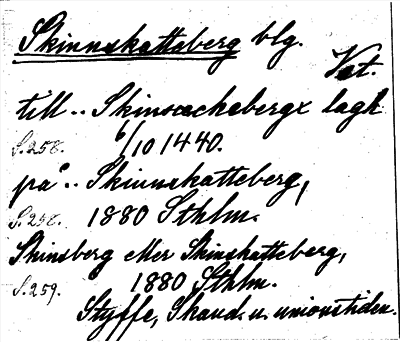 Skinnskatteberg blg.
Vst.
till .. Skinscachabergx lagh
S. 258. 6/10 1440.
på .. Skinnskatteberg,
S. 258. 1880 Sthlm.
Skinsberg eller Skinskatteberg,
S. 259. 1880 Sthlm.
Styffe, Skand. u. unionstiden.